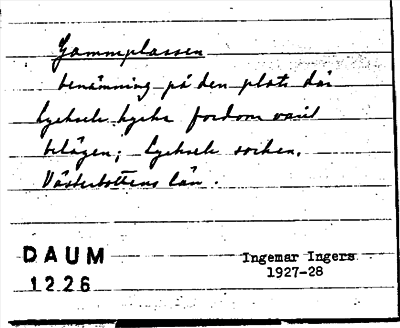 Gammplassen
benämning på den plats där
Lycksele kyrka fordom varit
belägen; Lycksele socken.
Västerbottens län.
DAUM
1226
Ingemar Ingers
1927-28